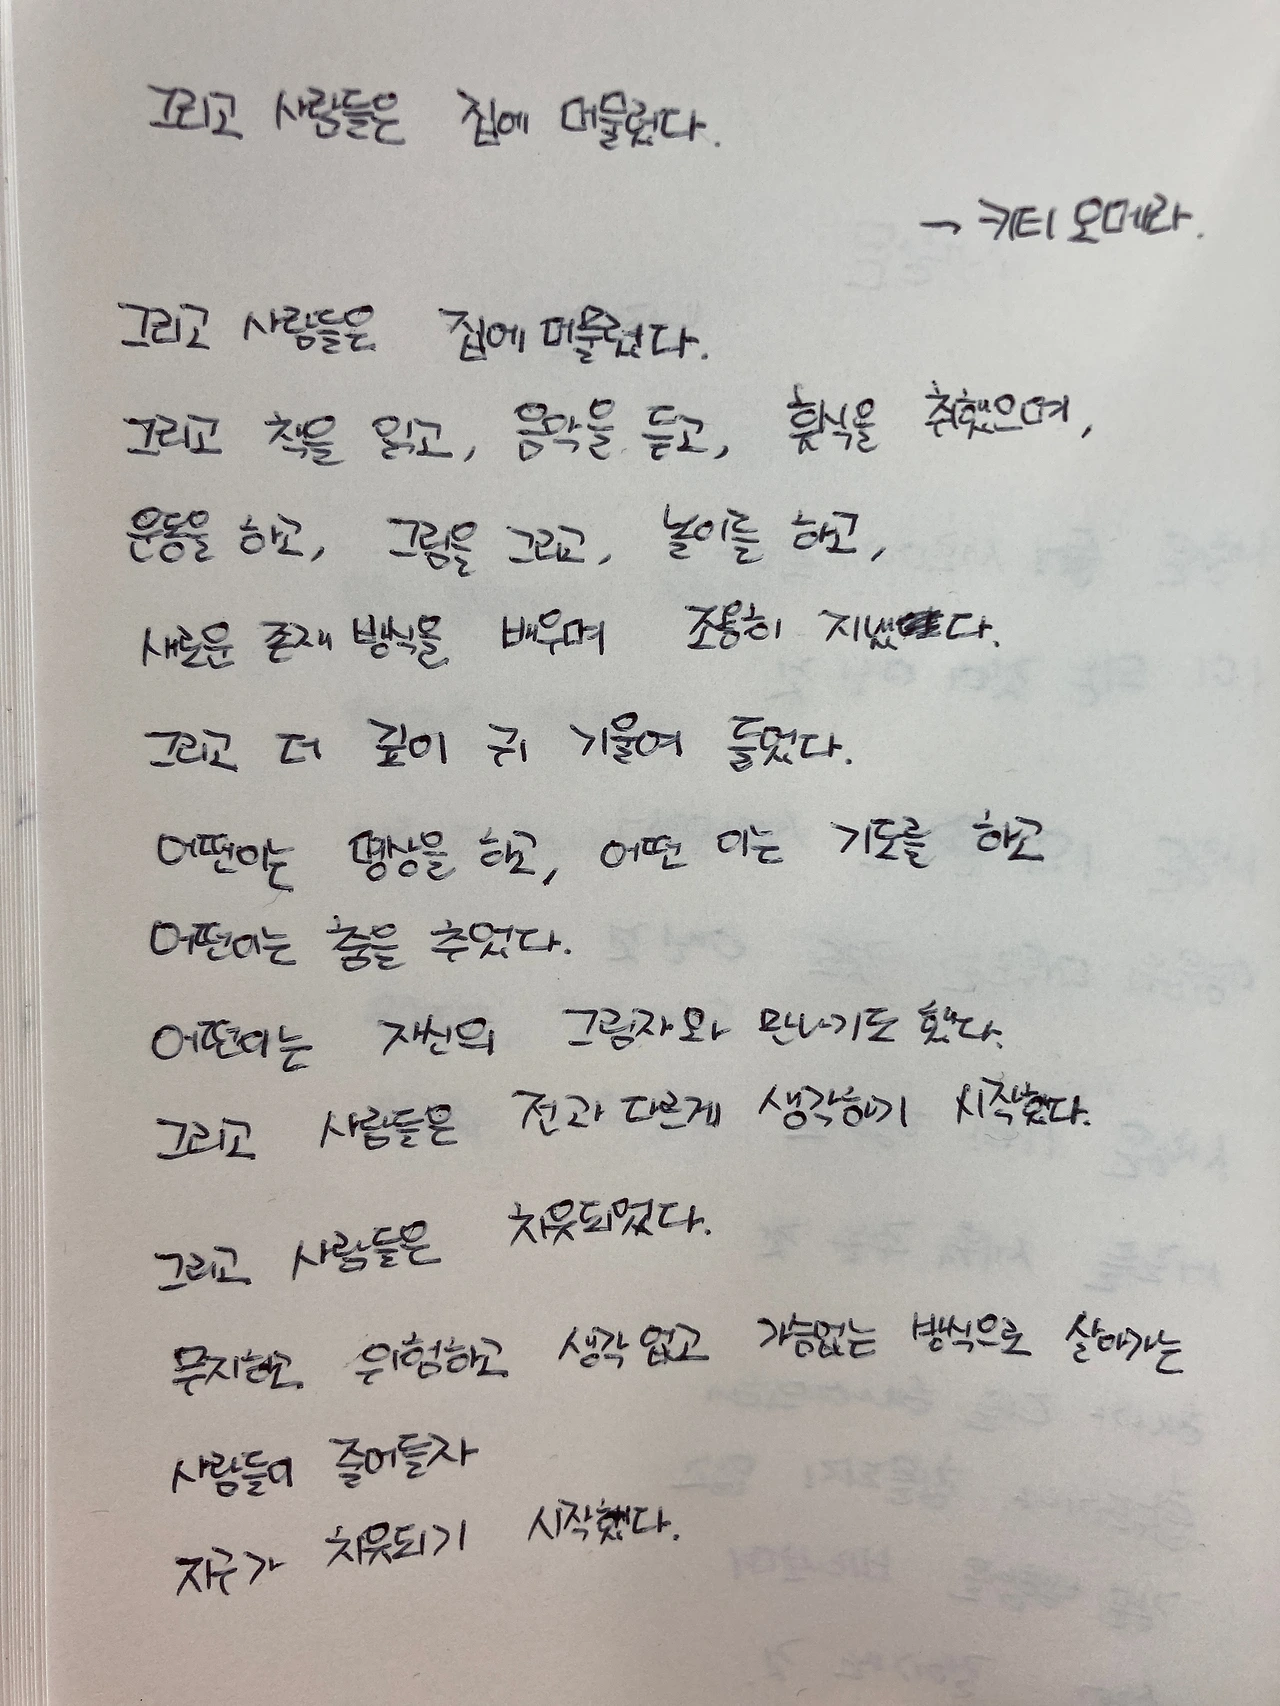 그리고 사람들은 집에 머물렀다.
→ 키티 오메라.
그리고 사람들은 집에 머물렀다.
그리고 책을 읽고, 음악을 듣고, 휴식을 취했으며,
운동을 하고, 그림을 그리고, 놀이를 하고,
새로운 존재 방식을 배우며 조용히 지냈다.
그리고 더 깊이 귀 기울여 들었다.
어떤이는 명상을 하고, 어떤 이는 기도를 하고
어떤이는 춤을 추었다.
어떤이는 자신의 그림자와 만나기도 했다.
그리고 사람들은 전과 다르게 생각하기 시작했다.
그리고 사람들은 치유되었다.
무지하고 위험하고 생각 없고 가슴없는 방식으로 살아가는
사람들이 줄어들자
지구가 치유되기 시작했다.